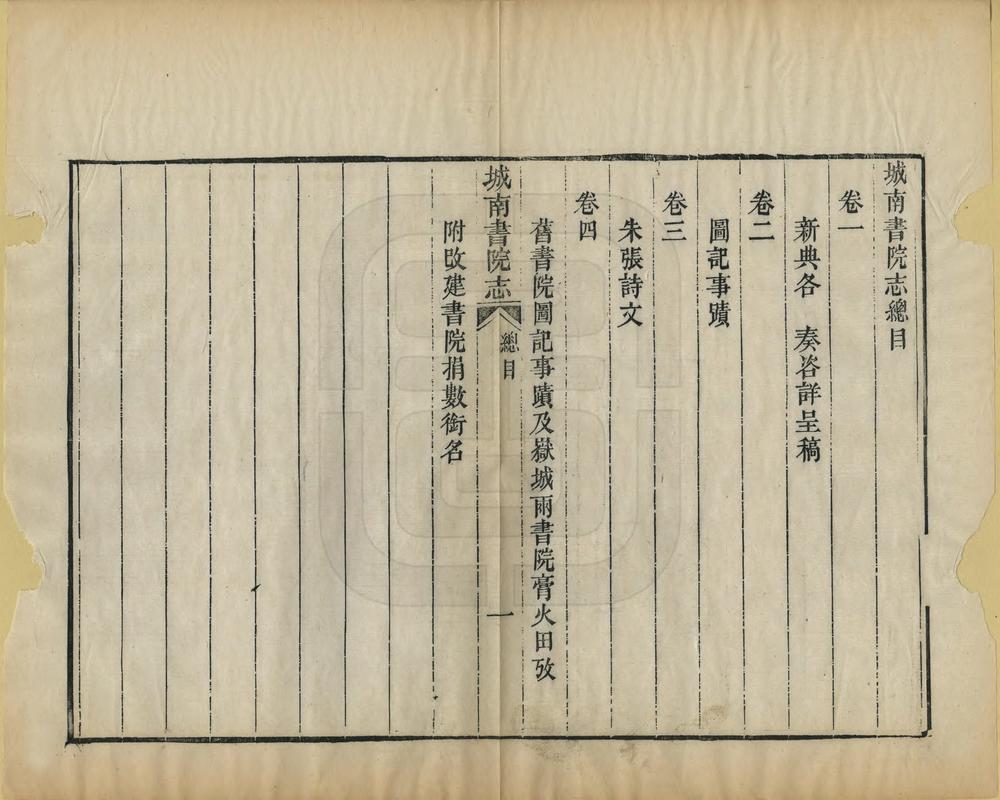 城南書院志總目
卷一
新典各　奏咨詳呈稿
卷二
圖記事蹟
卷三
朱張詩文
卷四
舊書院圖記事蹟及嶽城兩書院膏火田攷
城南書院志
總目
一
附改建書院捐數銜名